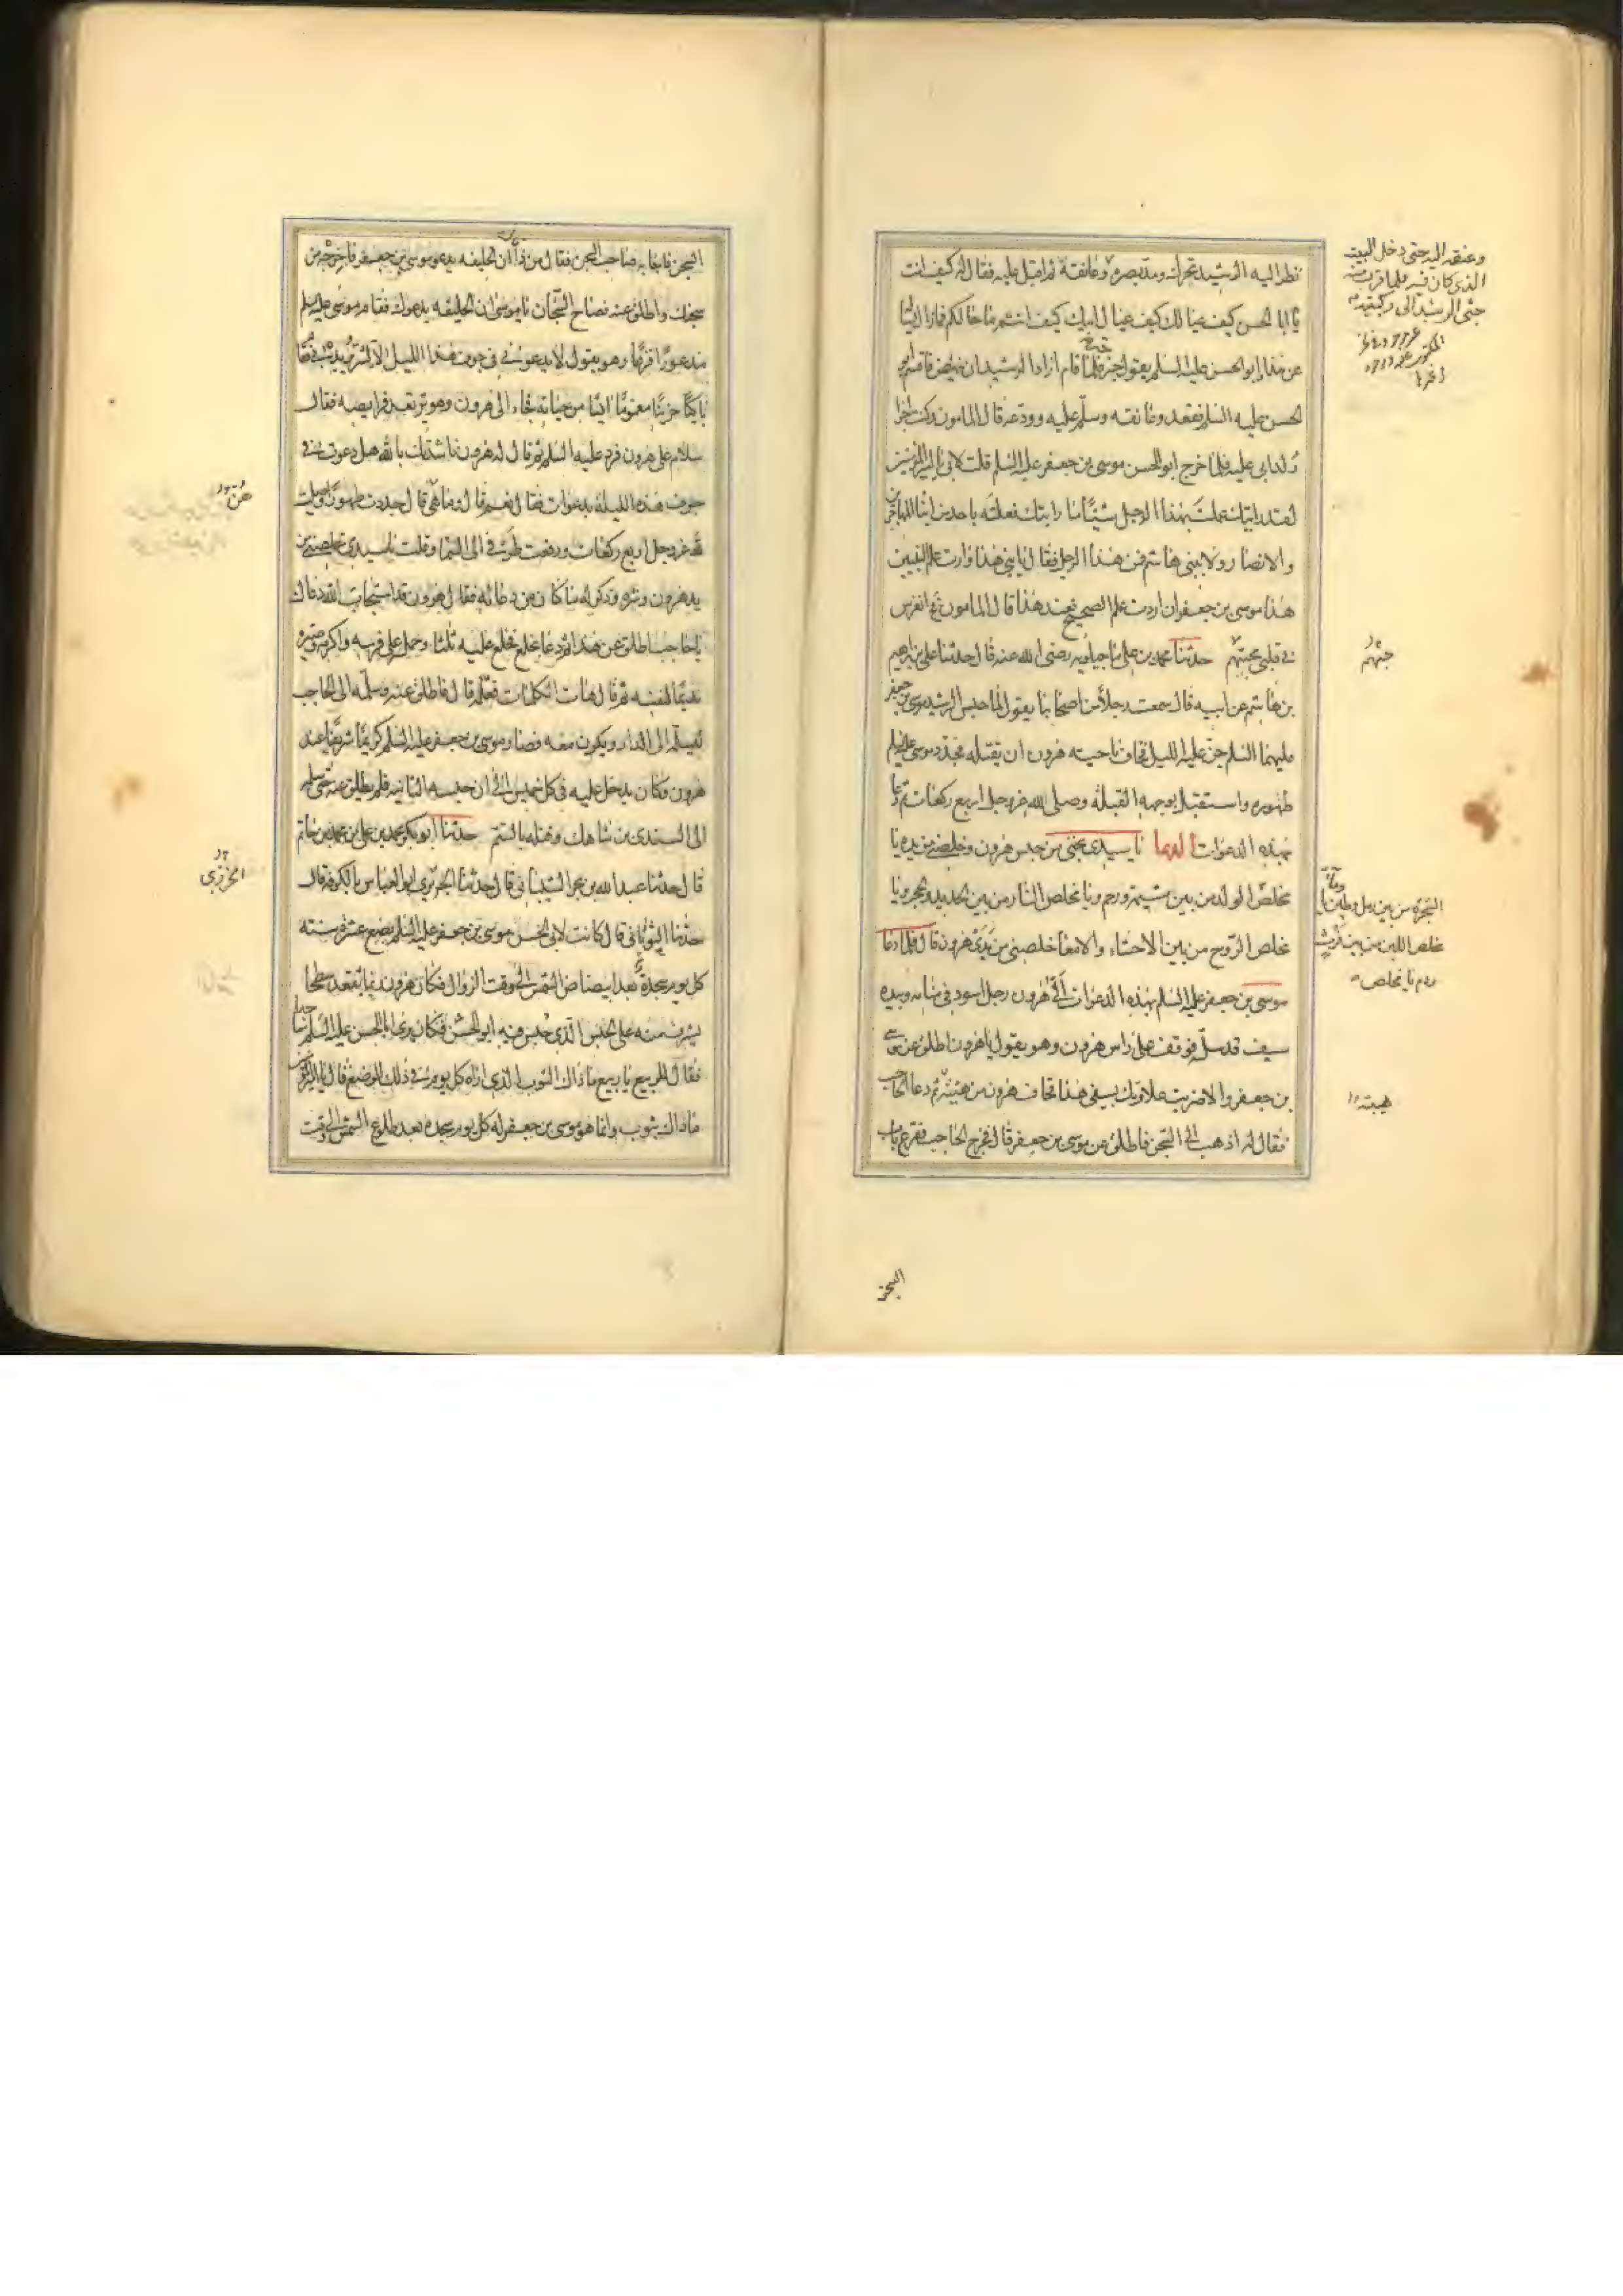 نظر اليه الرشيد تحرك ومد بصره وعانقه ثم اقبل عليه فقال له كيف انت
يا ابا الحسن كيف عيالك كيف عيال ابيك كيف انتم ما حالكم فما زال يسأله
عن هذا وابو الحسن عليه السلم يقول خير خير فلما قام اراد الرشيد ان ينهض فاقسم ابو
الحسن عليه السلم فقعد وعانقه وسلم عليه وودعه قال المامون وكنت اجرأ
ولد ابي عليه فلما خرج ابو الحسن موسى بن جعفر عليه السلم قلت لابي يا امير المؤمنين
لقد رايتك عملت بهذا الرجل شيئا ما رايتك فعلته باحد من ابناء المهاجرين
والانصار ولا ببني هاشم فمن هذا الرجل فقال يا بني هذا وارث علم النبيين
هذا موسى بن جعفر ان اردت علم الصحيح فعند هذا قال المامون فح انغرس
في قلبي محبتهم حدثنا محمد بن علي ماجيلويه رضى الله عنه قال حدثنا علي بن ابرهيم
بن هاشم عن ابيه قال سمعت رجلا من اصحابنا يقول لما حبس الرشيد موسى بن جعفر
عليهما السلم جن عليه الليل فخاف ناحية هرون ان يقتله فجدد موسى عليه السلم
طهوره واستقبل بوجهه القبلة وصلى لله عز وجل اربع ركعات ثم دعا
بهذه الدعوات الدعا يا سيدي نجني من حبس هرون وخلصني من يده يا
مخلص الولد من بين مشيمة ورحم ويا مخلص النار من بين الحديد والحجر ويا
مخلص الروح من بين الاحشاء والامعا خلصني من يدى هرون قال فلما دعا
موسى بن جعفر عليه السلم بهذه الدعوات اتى هرون رجل اسود في منامه وبيده
سيف قد سله فوقف على راس هرون وهو يقول يا هرون اطلق عن موسى
بن جعفر والا ضربت علاوتك بسيفي هذا فخاف هرون من هيبته ثم دعا الحاجب
فقال له اذهب الى السجن فاطلق عن موسى بن جعفر قال فخرج الحاجب فقرع باب
وعنقه اليه حتى دخل البيت
الذي كان فيه فلما قرب منه
جثى الرشيد على ركبتيه
حبهم
الشجر من بين رمل وطين وماء يا
مخلص اللبن من بين فرث
ودم يا مخلص
هيبته
السجن
السجن فاجابه صاحب السجن فقال من ذا قال ان الخليفه يدعو موسى بن جعفر فاخرجه من
سجنك واطلق عنه فصاح السجان يا موسى ان الخليفه يدعوك فقام موسى عليه السلم
مذعورا فزعا وهو يقول لا يدعوني في جوف هذا الليل الا لشر يريد بي فقام
باكيا حزينا مغموما ايسا من حياته فجاء الى هرون وهو ترتعد فرايصه فقال
سلام على هرون فرد عليه السلم ثم قال له هرون ناشدتك بالله هل دعوت في
جوف هذه الليلة بدعوات فقال نعم قال وما هي قال جددت طهورا وصليت
لله عز وجل اربع ركعات ورفعت طرفي الى السما وقلت يا سيدي خلصني من
يد هرون وشره وذكر له ما كان من دعائه فقال هرون قد استجاب الله دعاك
يا حاجب اطلق عن هذا ثم دعا بخلع فخلع عليه ثلثا وحمله على فرسه واكرمه وصيره
نديما لنفسه ثم قال هات الكلمات فعلمه قال فاطلق عنه وسلمه الى الحاجب
ليسلمه الى الدار ويكون معه فصار موسى بن جعفر عليه السلم كريما شريفا عند
هرون وكان يدخل عليه في كل خميس الى ان حبسه الثانيه فلم يطلق عنه حتى سلمه
الى السندى بن شاهك وقتله بالسم حدثنا ابو بكر محمد بن علي بن محمد بن حاتم
قال حدثنا عبد الله بن بحر الشيباني قال حدثنا الخرزي ابو العباس بالكوفه قال
حدثنا الثوباني قال كانت لابي الحسن موسى بن جعفر عليه السلم بضع عشرة سنته
كل يوم سجدة بعد ابيضاض الشمس الى وقت الزوال فكان هرون ربما يقعد سطحا
يشرف منه على الحبس الذي حبس فيه ابو الحسن فكان يرى ابا الحسن عليه السلم ساجدا
فقال للربيع يا ربيع ما ذاك الثوب الذي اراه كل يوم في ذلك الموضع قال يا امير المؤمنين
ما ذاك بثوب وانما هو موسى بن جعفر له كل يوم سجده بعد طلوع الشمس الى وقت
هن
الخرزى